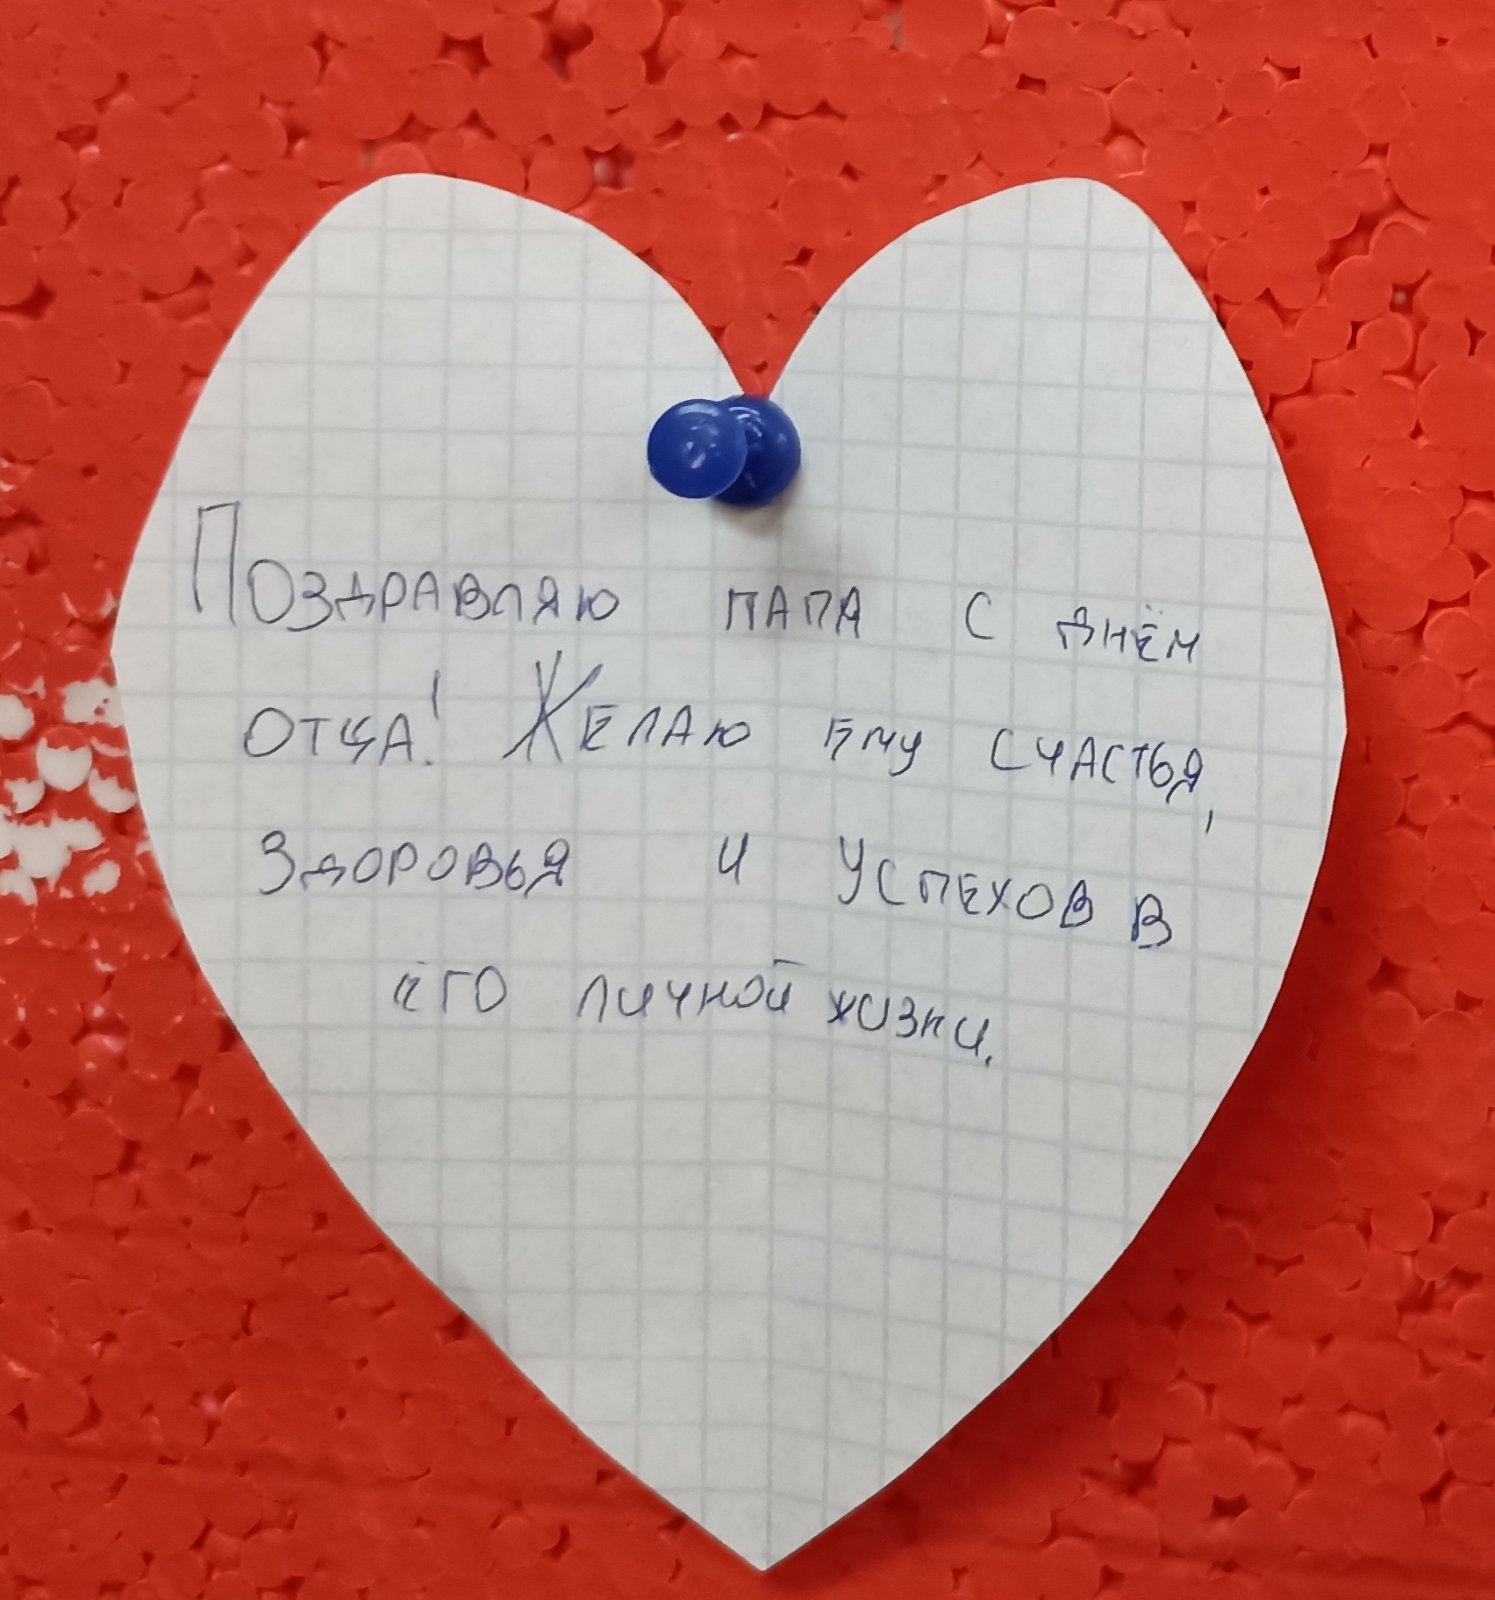 Поздравляю папа с днём
отца! Желаю ему счастья,
здоровья и успехов в
его личной жизни.